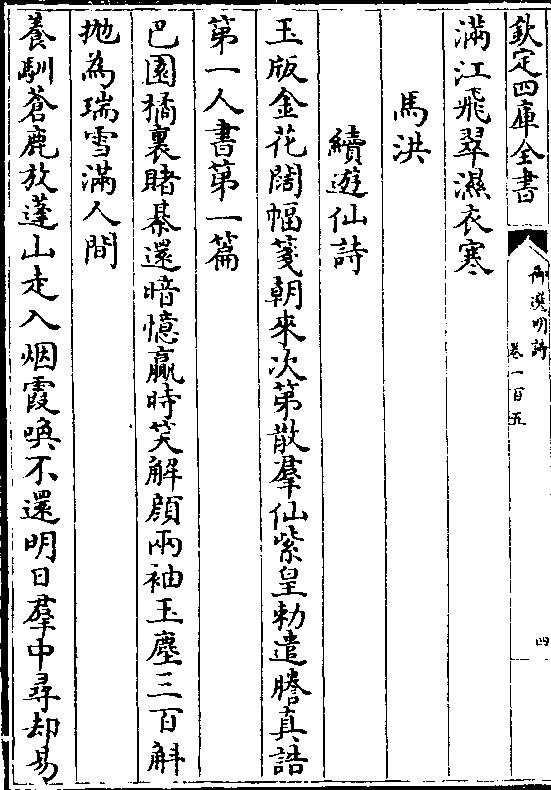 欽定四庫全書
御選明詩
卷一百五
四
滿江飛翠濕衣寒
馬洪
續遊仙詩
玉版金花闊幅箋朝來次第散羣仙紫皇勅遣謄真誥
第一人書第一篇
巴園橘裏賭棊還暗憶贏時笑解顔兩袖玉塵三百斛
抛為瑞雪滿人間
養馴蒼鹿放蓬山走入烟霞喚不還明日羣中尋却易